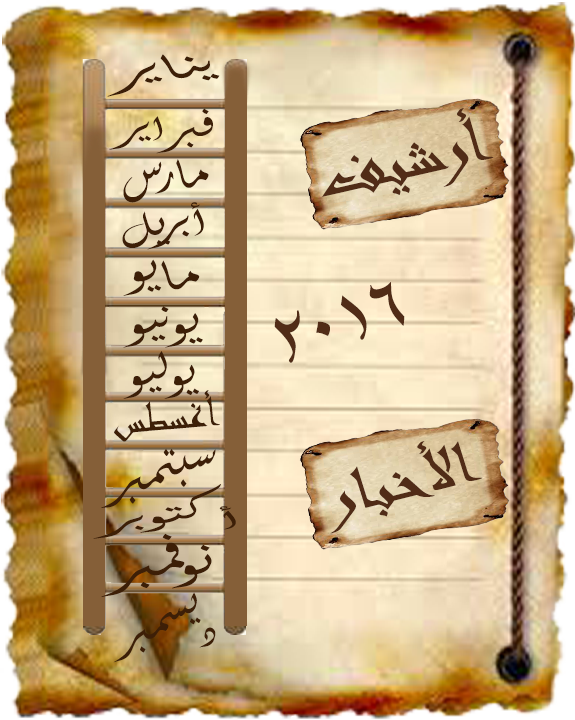 أرشيف
٢٠١٦
الأخبار
يناير
فبراير
مارس
أبريل
مايو
يونيو
يوليو
أغسطس
سبتمبر
أكتوبر
نوفمبر
ديسمبر